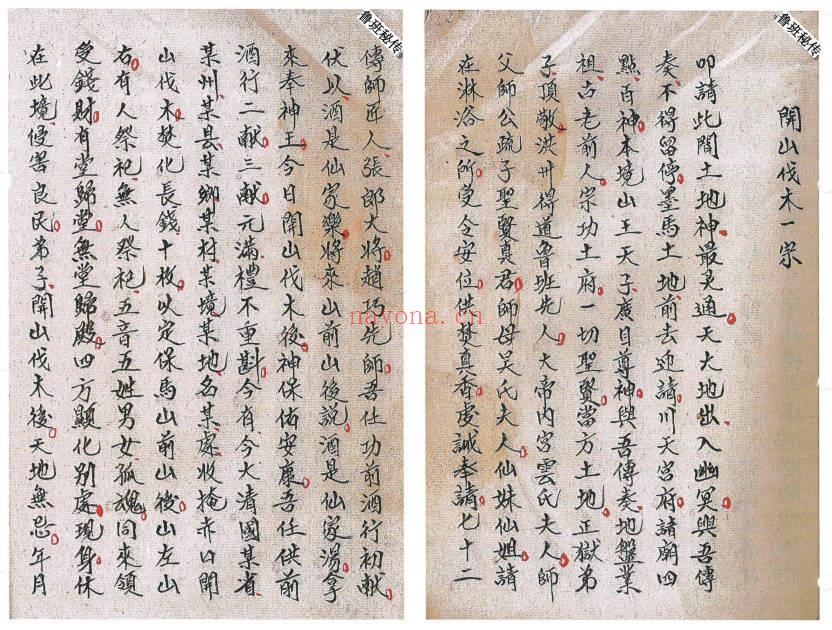 鲁班秘传
開山伐木一宗
叩請此間土地神最灵通天大地出入幽冥與吾傳
奏不得留停墨馬土地前去迎請川天宮府諸廟四
點百神本境山王天子廣目尊神與吾傳奏地盤業
祖古老前人宗功土府一切聖賢當方土地正獄弟
子頂敬洪州得道鲁班先人大帝内宮雲氏夫人師
父師公疏子聖賢真君師母吴氏夫人仙妹仙姐請
在淋浴之所受令安位供焚真香虔誠奉請七十二
鲁班秘传
傳師匠人張郎大將趙巧先師吾仕功前酒行初献
伏以酒是仙家樂將來山前山後説酒是仙家湯拿
來奉神王今日開山伐木後神保佑安康吾任供前
酒行二献三献元滿禮不重斟今有今大清國某省
某州某县某鄉某村某境某地名某處收掩赤口開
山伐木焚化長錢十枚以定保馬山前山後山左山
右有人祭祀無人祭祀五音五姓男女孤魂同來領
受錢財有堂歸堂無堂歸殿四方顯化别處現身休
在此境侵害良民弟子開山伐木後天地無忌年月
nayona.cn